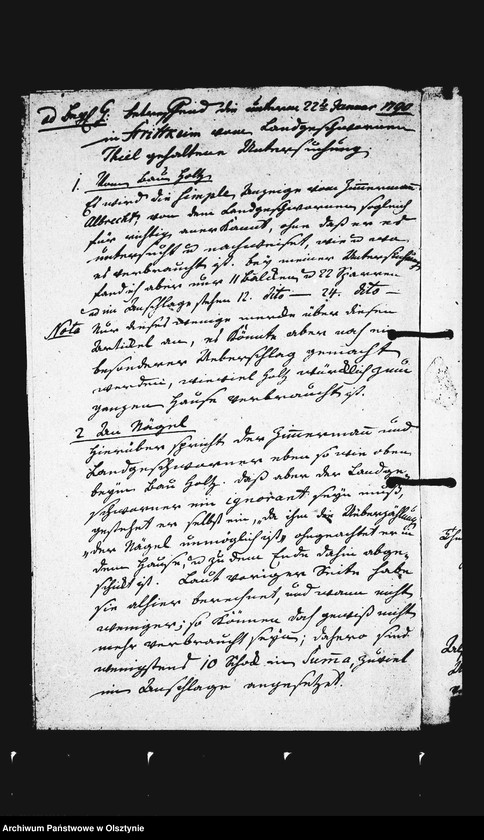 ad Beyl G: betreffend die unterm 22t Januar 1790
in Arittkeim vom Landgeschwornen
Thiel gehaltene Untersuchung.
1. Vom Bau Holtz
Es wird die simple Anzeige vom Zimmermann
Albrecht, von dem Landgeschwornen sogleich
für richtig anerkannt, ohne daß er es
untersucht u nachweiset, wie u wo
es verbraucht ist. bey meiner Untersuchung
fand ich aber nur 11 Balcken u 22 Sparren
u im Anschlage stehen 12. dito — 24. dito —
Nota Nur dieses wenige merke über diesen
Artickel an, es könnte aber noch ein
besonderer Ueberschlag gemacht
werden, wieviel Holtz würcklich zum
gantzen Hause verbraucht ist.
2 An Nägel
Hierüber spricht der Zimmermann und
Landgeschworner eben so wie oben
beym Bau Holtz. daß aber der Landge-
schworner ein ignorant seyn muß,
gestehet er selbst ein „da ihm die Ueberzählung
„der Nägel unmöglich ist" ohngeachtet er in
dem Hause, u zu dem Ende dahin abge-
schickt ist. Laut voriger Seite habe
sie alhier berechnet, und wann nicht
weniger; so können doch gewiß nicht
mehr verbraucht seyn; dahero sind
wenigstens 10 Schock in Summa, zuviel
im Anschlage angesetzet.
Archiwum Państwowe w Olsztynie